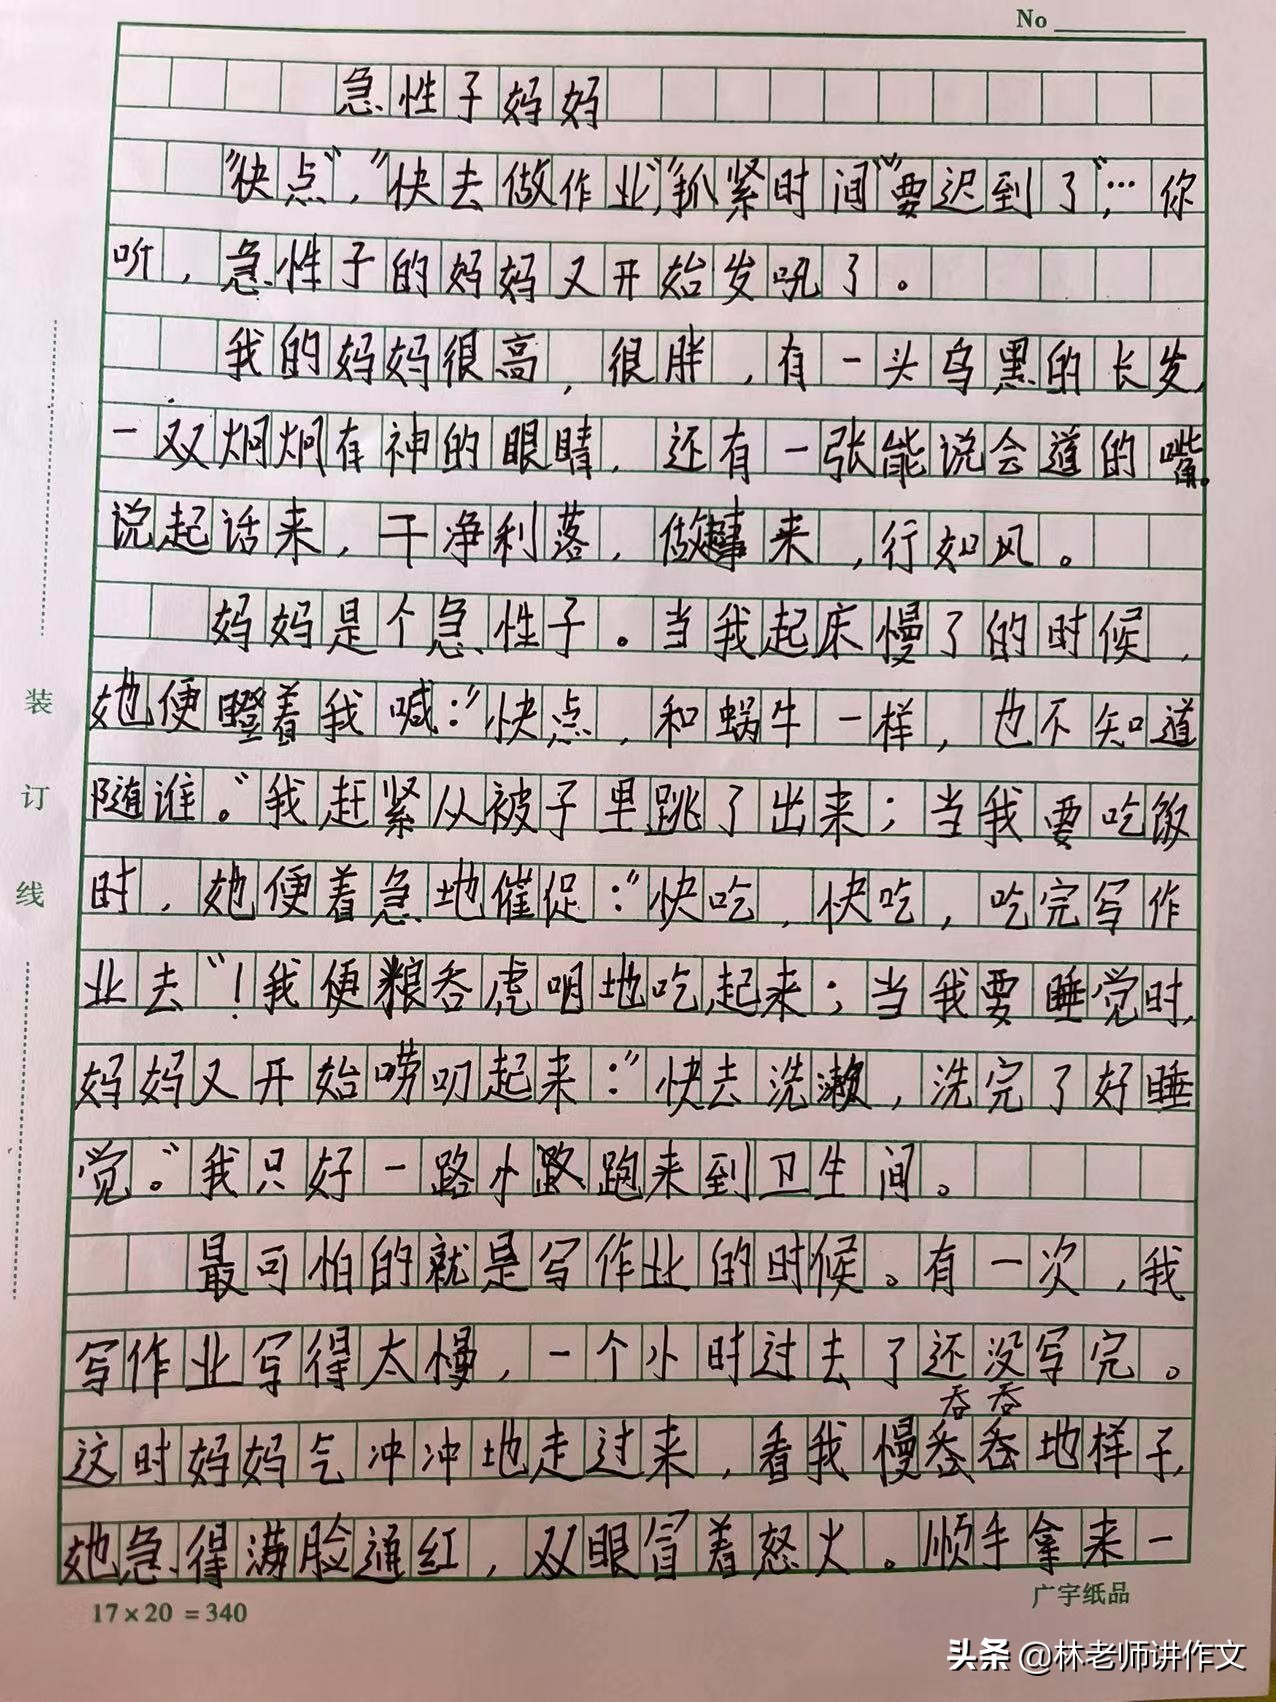 No
急性子妈妈
“快点”，“快去做作业”，“抓紧时间”“要迟到了”，…你
听，急性子的妈妈又开始发吼了。
我的妈妈很高，很胖，有一头乌黑的长发，
一双炯炯有神的眼睛，还有一张能说会道的嘴。
说起话来，干净利落，做起事来，行如风。
妈妈是个急性子。当我起床慢了的时候，
她便瞪着我喊：“快点，和蜗牛一样，也不知道
随谁。”我赶紧从被子里跳了出来；当我要吃饭
时，她便着急地催促：“快吃，快吃，吃完写作
业去”！我便粮吞虎咽地吃起来；当我要睡觉时，
妈妈又开始唠叨起来：“快去洗漱，洗完了好睡
觉。”我只好一路小跑来到卫生间。
最可怕的就是写作业的时候。有一次，我
写作业写得太慢，一个小时过去了还没写完。
吞吞
这时妈妈气冲冲地走过来，看我慢地样子，
她急得满脸通红，双眼冒着怒火。顺手拿来一
装订线
17×20=340
广宇纸品
头条 @林老师讲作文